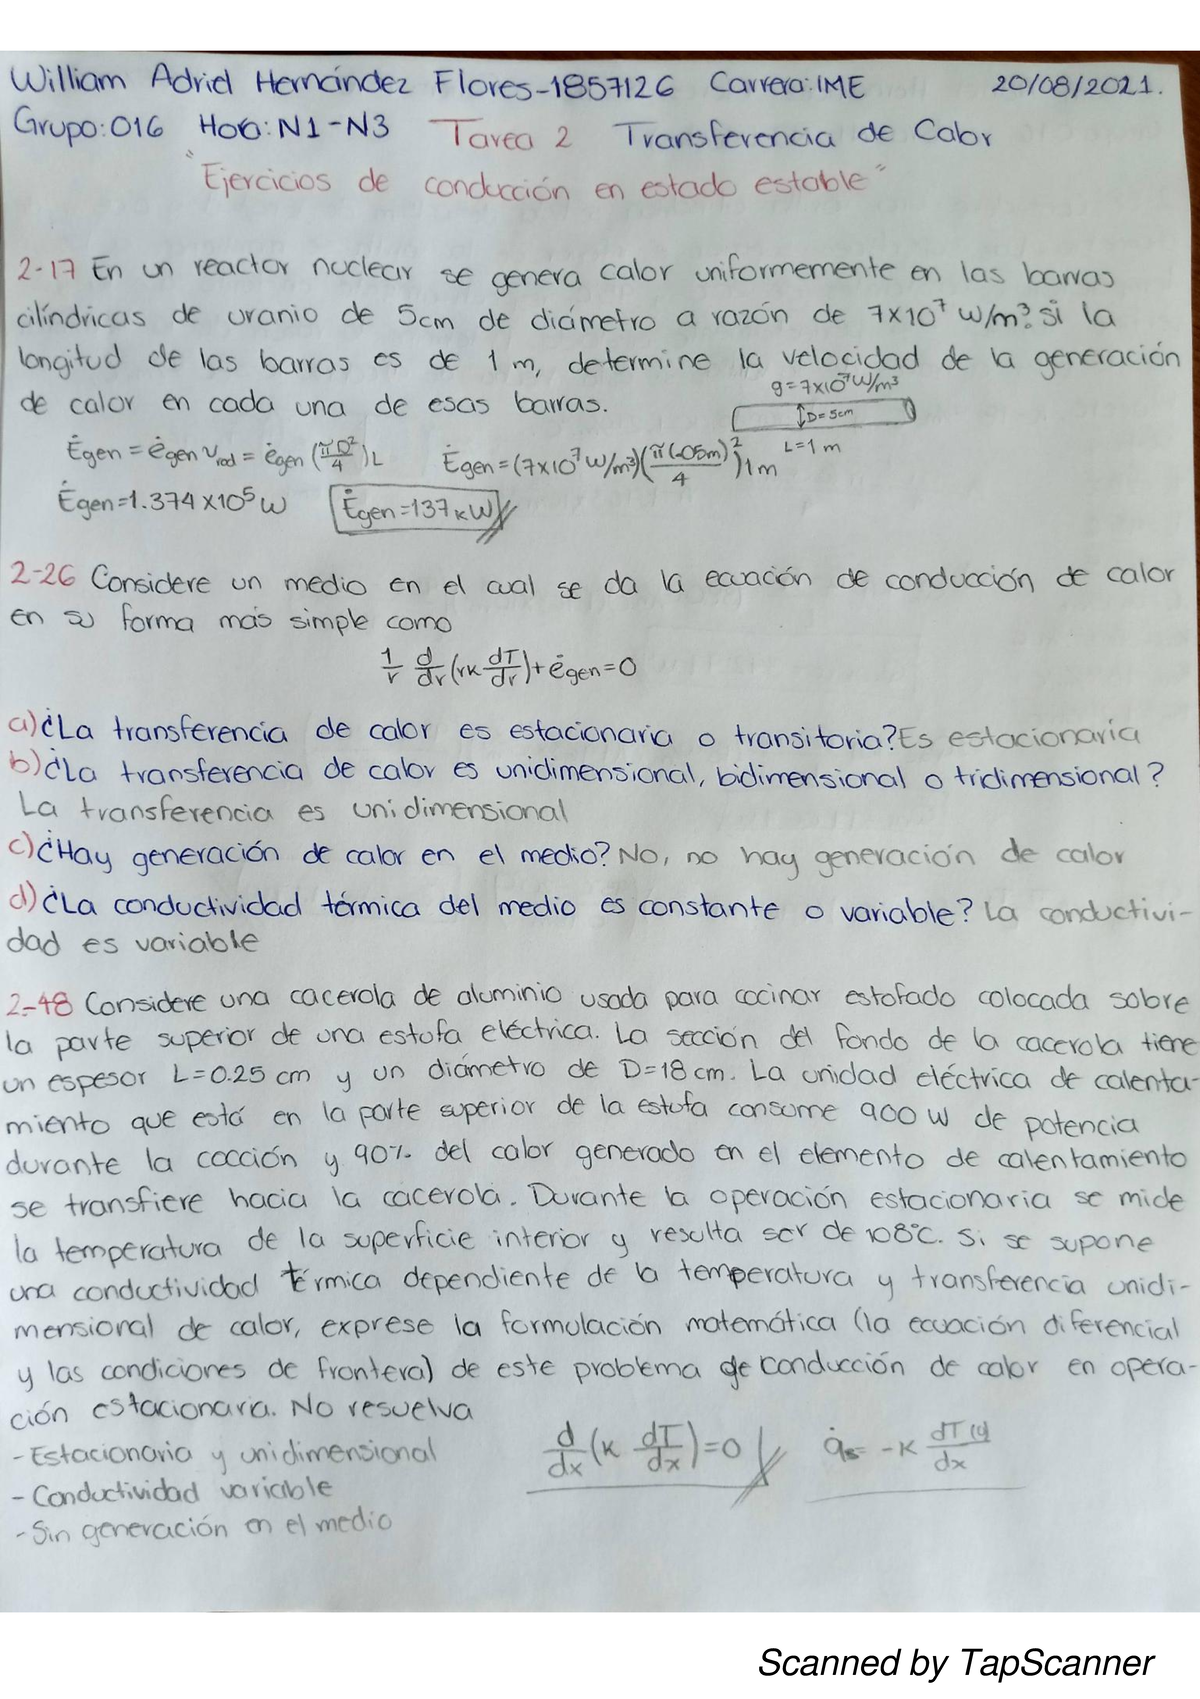 William Adriel Hernández Flores-1857126 Carrera:IME 20/08/2021.
Grupo:016 Hora:N1-N3 Tarea 2 Transferencia de Calor
"Ejercicios de conducción en estado estable"
2-17 En un reactor nuclear se genera calor uniformemente en las barras
cilíndricas de uranio de 5cm de diámetro a razón de 7x10⁷ W/m³. si la
longitud de las barras es de 1 m, determine la velocidad de la generación
de calor en cada una de esas barras.
g=7x10⁷W/m³
D=5cm
L=1m
Ėgen=ėgen Vrod=ėgen(πD²/4)L Ėgen=(7x10⁷W/m³)(π(.05m)²/4)1m
Ėgen=1.374x10⁵W Ėgen=137kW
2-26 Considere un medio en el cual se da la ecuación de conducción de calor
en su forma más simple como
1/r d/dr(rk dT/dr)+ėgen=0
a)¿La transferencia de calor es estacionaria o transitoria? Es estacionaria
b)¿La transferencia de calor es unidimensional, bidimensional o tridimensional?
La transferencia es unidimensional
c)¿Hay generación de calor en el medio? No, no hay generación de calor
d)¿La conductividad térmica del medio es constante o variable? La conductivi-
dad es variable
2-48 Considere una cacerola de aluminio usada para cocinar estofado colocada sobre
la parte superior de una estufa eléctrica. La sección del fondo de la cacerola tiene
un espesor L=0.25 cm y un diámetro de D=18cm. La unidad eléctrica de calenta-
miento que está en la parte superior de la estufa consume 900 W de potencia
durante la cocción y 90% del calor generado en el elemento de calentamiento
se transfiere hacia la cacerola. Durante la operación estacionaria se mide
la temperatura de la superficie interior y resulta ser de 108°C. Si se supone
una conductividad térmica dependiente de la temperatura y transferencia unidi-
mensional de calor, exprese la formulación matemática (la ecuación diferencial
y las condiciones de frontera) de este problema de conducción de calor en opera-
ción estacionaria. No resuelva
-Estacionaria y unidimensional
-Conductividad variable
-Sin generación en el medio
d/dx(k dT/dx)=0
q̇s=-k dT(0)/dx
Scanned by TapScanner